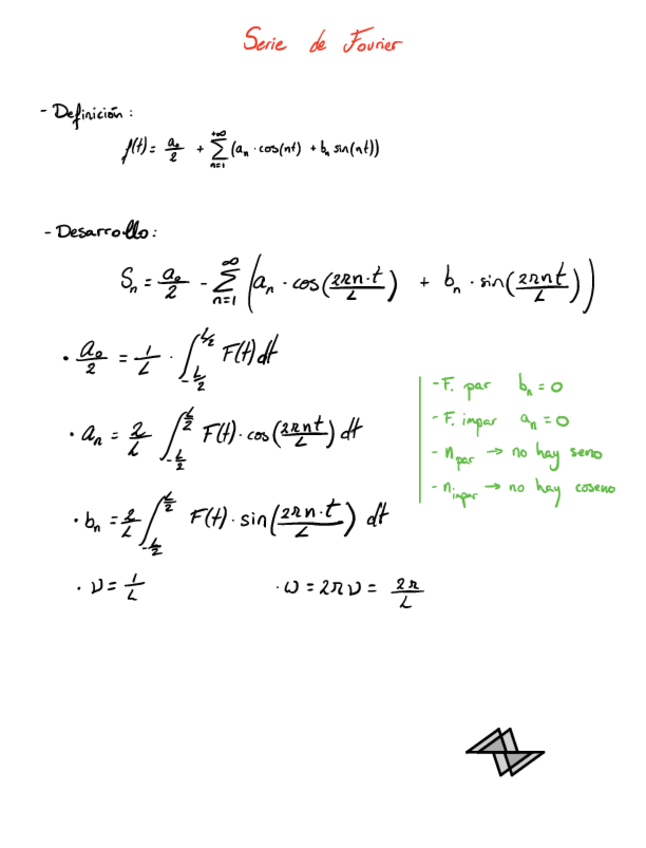 Serie de Fourier
- Definición:
f(t) = a₀/2 + ∑_{n=1}^{+∞} (aₙ · cos(nt) + bₙ sin(nt))
- Desarrollo:
Sₙ = a₀/2 - ∑_{n=1}^{∞} (aₙ · cos(2πn·t/L) + bₙ · sin(2πnt/L))
· a₀/2 = 1/L · ∫_{-L/2}^{L/2} F(t) dt
· aₙ = 2/L ∫_{-L/2}^{L/2} F(t) · cos(2πnt/L) dt
· bₙ = 2/L ∫_{-L/2}^{L/2} F(t) · sin(2πn·t/L) dt
· ν = 1/L · ω = 2πν = 2π/L
- F. par bₙ = 0
- F. impar aₙ = 0
- n_par → no hay seno
- n_impar → no hay coseno